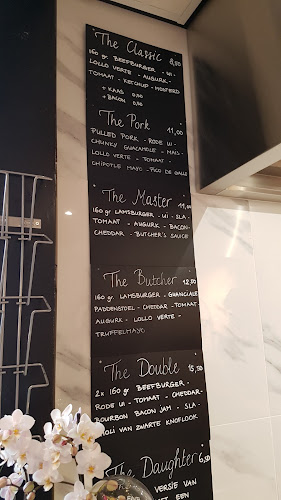 The Classic 8,50
160 gr. BEEFBURGER - UI -
LOLLO VERTE - AUGURK -
TOMAAT - KETCHUP - MOSTERD
+ KAAS 0,50
+ BACON 0,50
The Pork 11,00
PULLED PORK - RODE UI -
CHUNKY GUACAMOLE - MAIS -
LOLLO VERTE - TOMAAT -
CHIPOTLE MAYO - PICO DE GALLO
The Master 11,00
160 gr LAMSBURGER - UI - SLA -
TOMAAT - AUGURK - BACON -
CHEDDAR - BUTCHER'S SAUCE
The Butcher 12,00
160 gr. LAMSBURGER - GUANCIALE
PADDENSTOEL - CHEDDAR - TOMAAT -
AUGURK - LOLLO VERTE -
TRUFFELMAYO
The Double 15,50
2x 160 gr BEEFBURGER -
RODE UI - TOMAAT - CHEDDAR -
BOURBON BACON JAM - SLA -
AIOLI VAN ZWARTE KNOFLOOK
The Daughter 6,50
VERSIE VAN
EEN